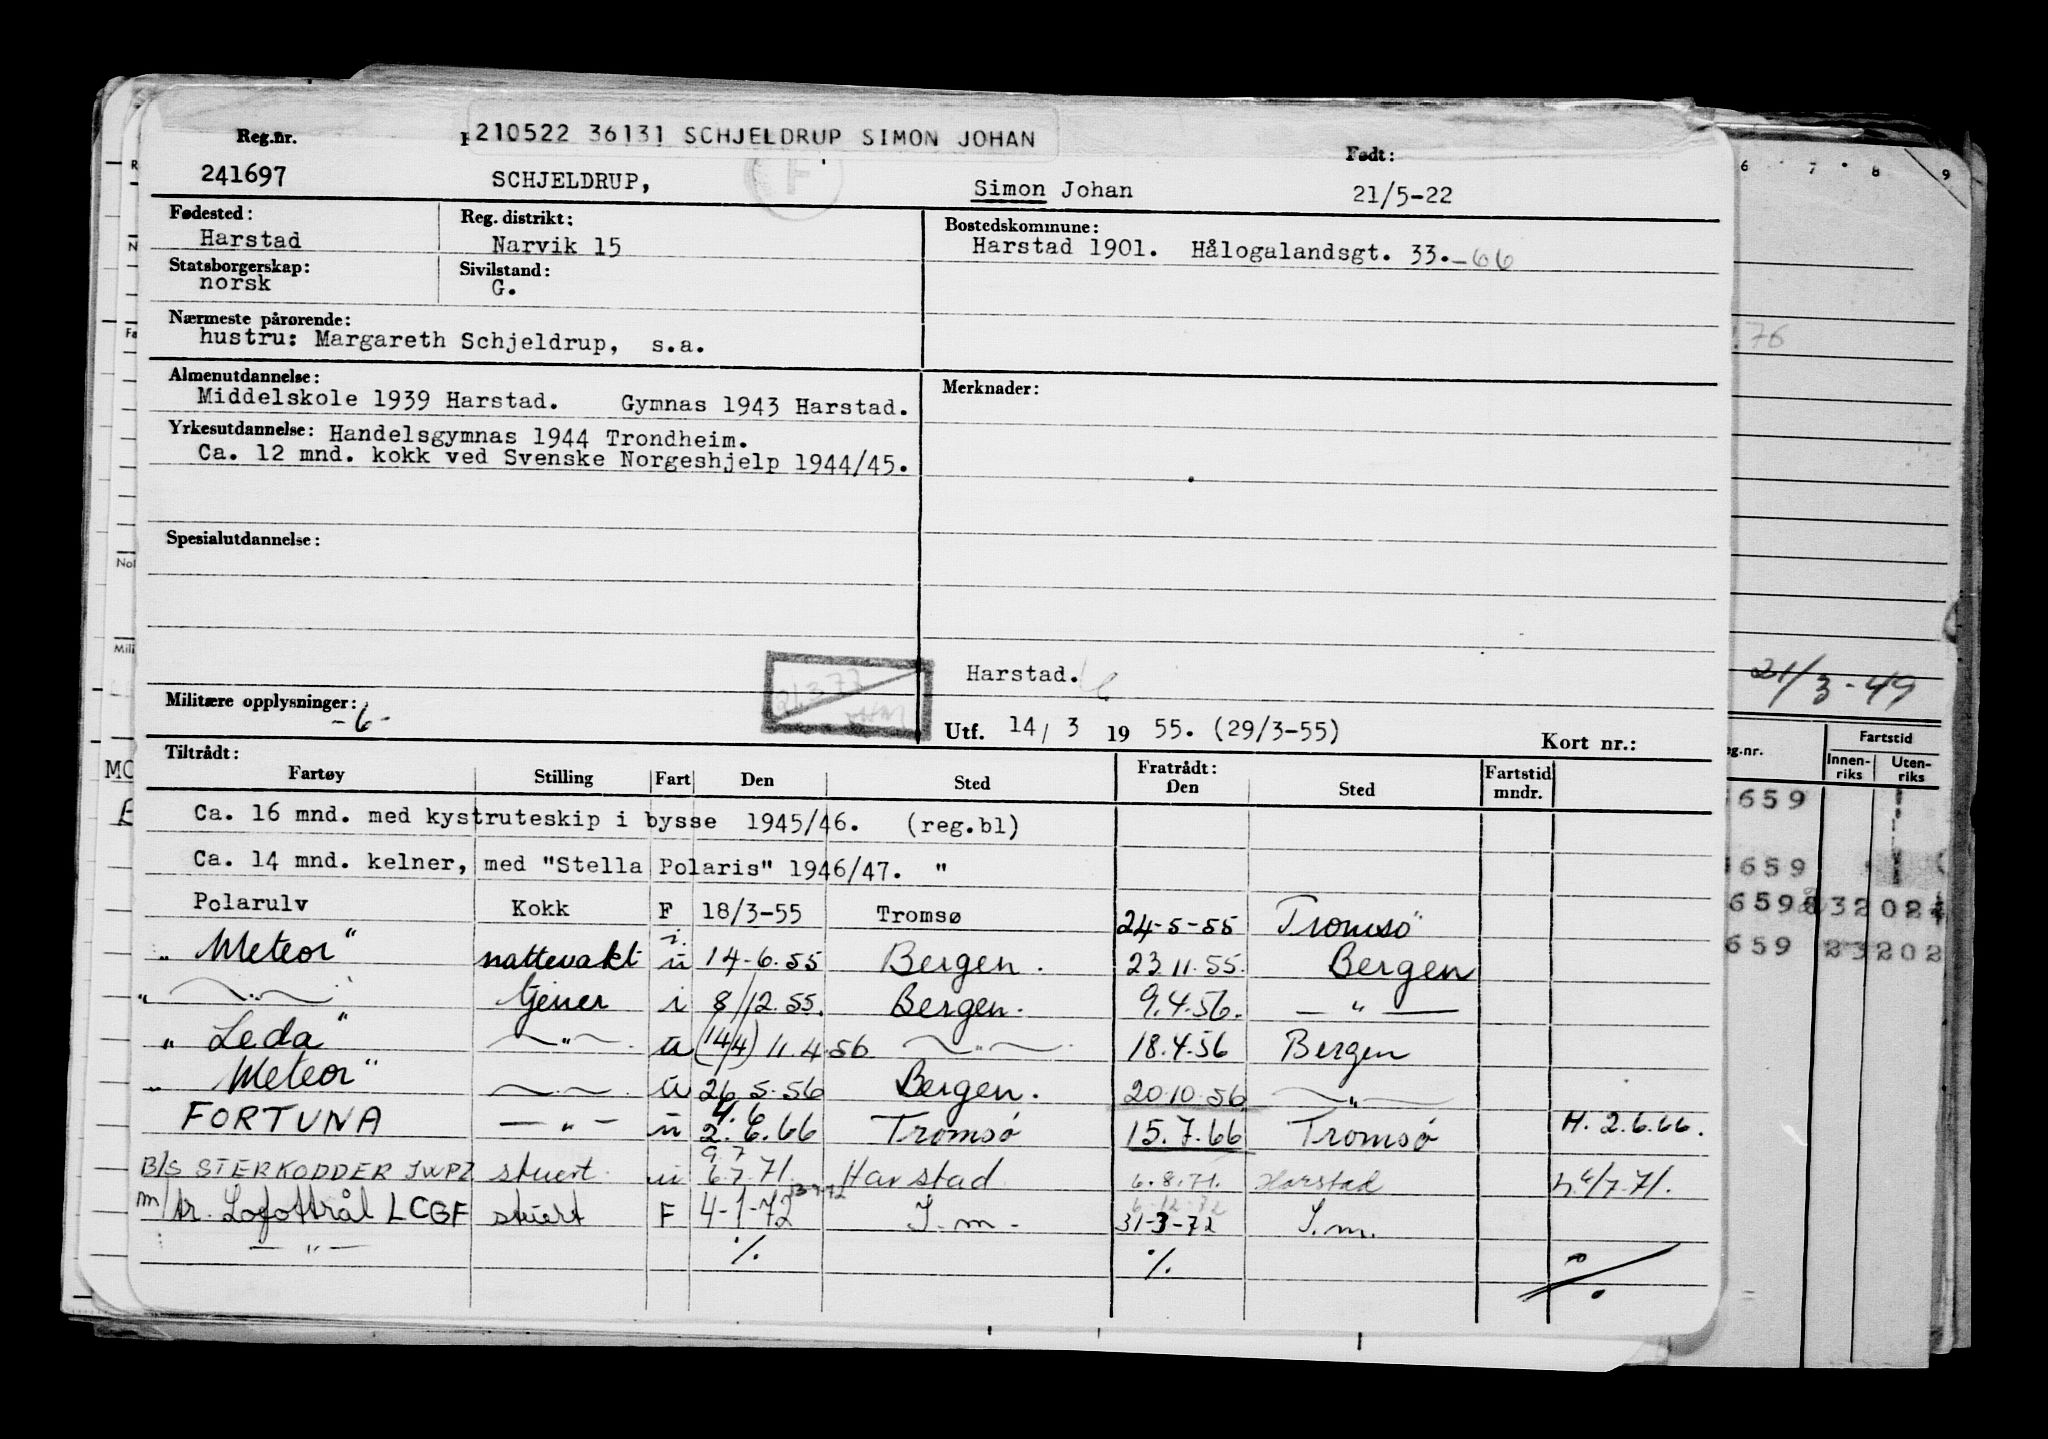 210522 36131 SCHJELDRUP SIMON JOHAN
Reg.nr. Født:
241697 SCHJELDRUP, Simon Johan 21/5-22
F
Fødested: Reg. distrikt: Bostedskommune:
Harstad Narvik 15 Harstad 1901. Hålogalandsgt. 33.-66
Statsborgerskap: Sivilstand:
norsk G.
Nærmeste pårørende:
hustru: Margareth Schjeldrup, s.a.
Almenutdannelse: Merknader:
Middelskole 1939 Harstad. Gymnas 1943 Harstad.
Yrkesutdannelse: Handelsgymnas 1944 Trondheim.
Ca. 12 mnd. kokk ved Svenske Norgeshjelp 1944/45.
Spesialutdannelse:
Harstad.
Militære opplysninger:
-6-
Utf. 14/ 3 19 55. (29/3-55) Kort nr.:
Tiltrådt: Fratrådt:
Fartøy Stilling Fart Den Sted Den Sted Fartstid mndr.
Ca. 16 mnd. med kystruteskip i bysse 1945/46. (reg.bl)
Ca. 14 mnd. kelner, med "Stella Polaris" 1946/47. "
Polarulv Kokk F 18/3-55 Tromsø 24-5-55 Tromsø
„ Meteor" nattevakt i. u 14-6.55 Bergen. 23.11.55. Bergen
„ — " — tjener i 8/12.55. Bergen. 9.4.56. — " —
„ Leda" — " — u (14/4) 11.4.56 — " — 18.4.56 Bergen
„ Meteor" — " — u 26.5.56 Bergen. 20.10.56 — " —
4.6
FORTUNA — " — u 2.6.66 Tromsø 15.7.66 Tromsø H. 2.6.66.
9.7
B/S STERKODDER JWPZ stuert u 6.7.71. Harstad 6.8.71. Harstad h. 6/7.71.
6-12-72
m/tr. Lofottrål LCGF stuert F 4-1-72 S.m. 31-3-72 S.m.
— " — ./. ./.
6 7 8 9
76
21/3-49
Fartstid
g.nr. Innen-riks Uten-riks
659
659
659 3202
659 23202